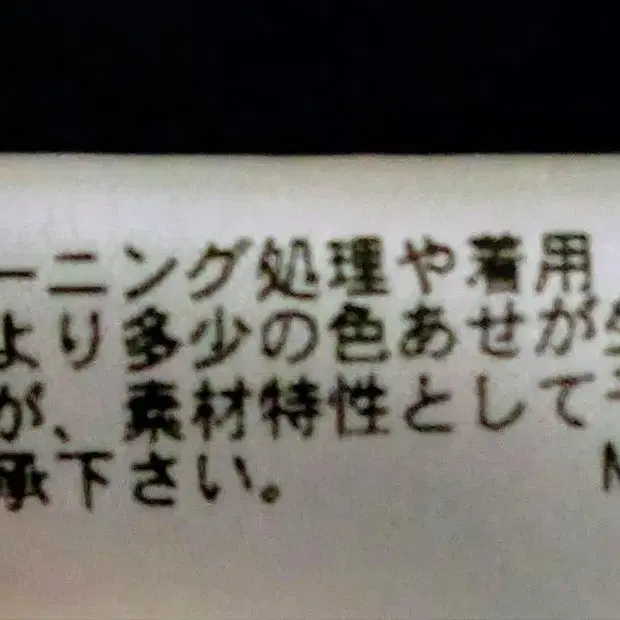 ーニング処理や着用
より多少の色あせが生
が、素材特性として予
承下さい。
N